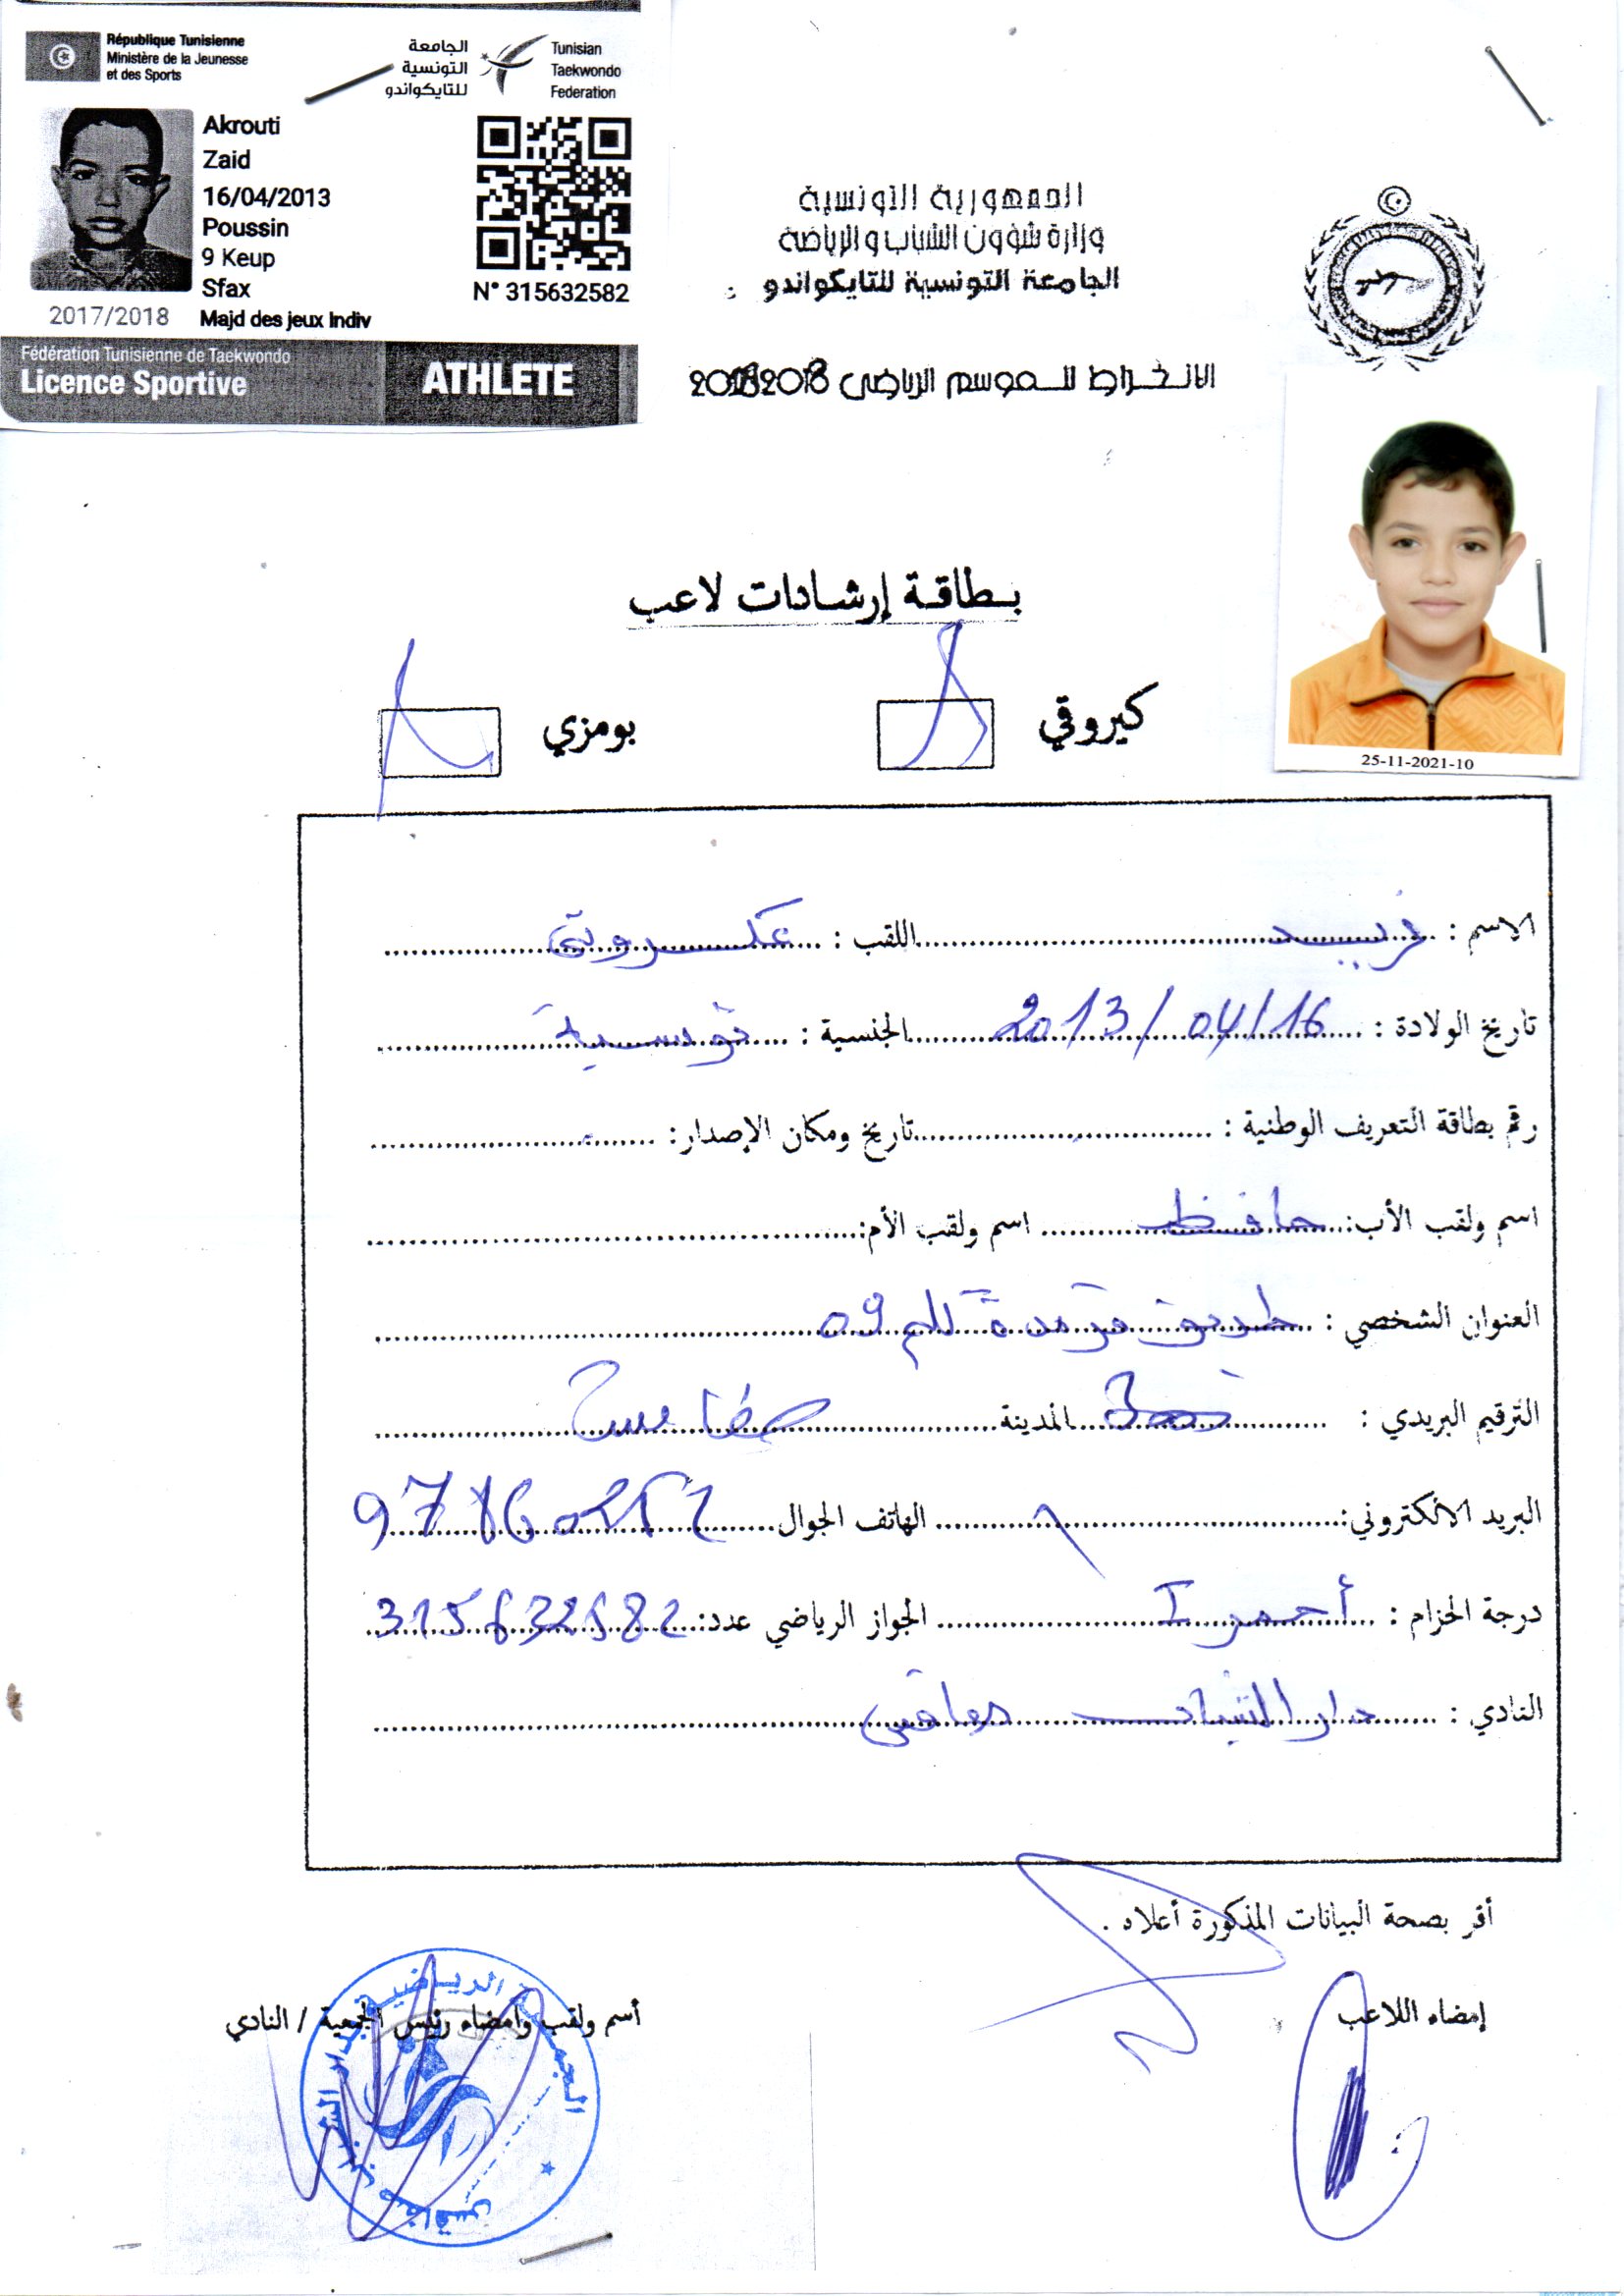 République Tunisienne
Ministère de la Jeunesse
et des Sports
الجامعة
التونسية
للتايكواندو
Tunisian
Taekwondo
Federation
Akrouti
Zaid
16/04/2013
Poussin
9 Keup
Sfax
N° 315632582
2017/2018 Majd des jeux Indiv
Fédération Tunisienne de Taekwondo
Licence Sportive
ATHLETE
الجمهورية التونسية
وزارة شؤون الشباب والرياضة
الجامعة التونسية للتايكواندو
الانخراط للموسم الرياضي
25-11-2021-10
بطاقة إرشادات لاعب
كيروقي
بومزي
الاسم : اللقب : عكروتي
تاريخ الولادة : 2013/04/16 الجنسية : تونسية
رقم بطاقة التعريف الوطنية : تاريخ ومكان الإصدار:
اسم ولقب الأب: حافظ اسم ولقب الأم:
العنوان الشخصي : طريق قرمدة كلم 09
الترقيم البريدي : المدينة صفاقس
البريد الالكتروني: الهاتف الجوال
درجة الحزام : أحمر I الجواز الرياضي عدد: 315632582
النادي : دار الشباب صفاقس
أقر بصحة البيانات المذكورة أعلاه .
إمضاء اللاعب
أسم ولقب وامضاء رئيس الجمعية / النادي
الجمعية الرياضية بدار الشباب صفاقس